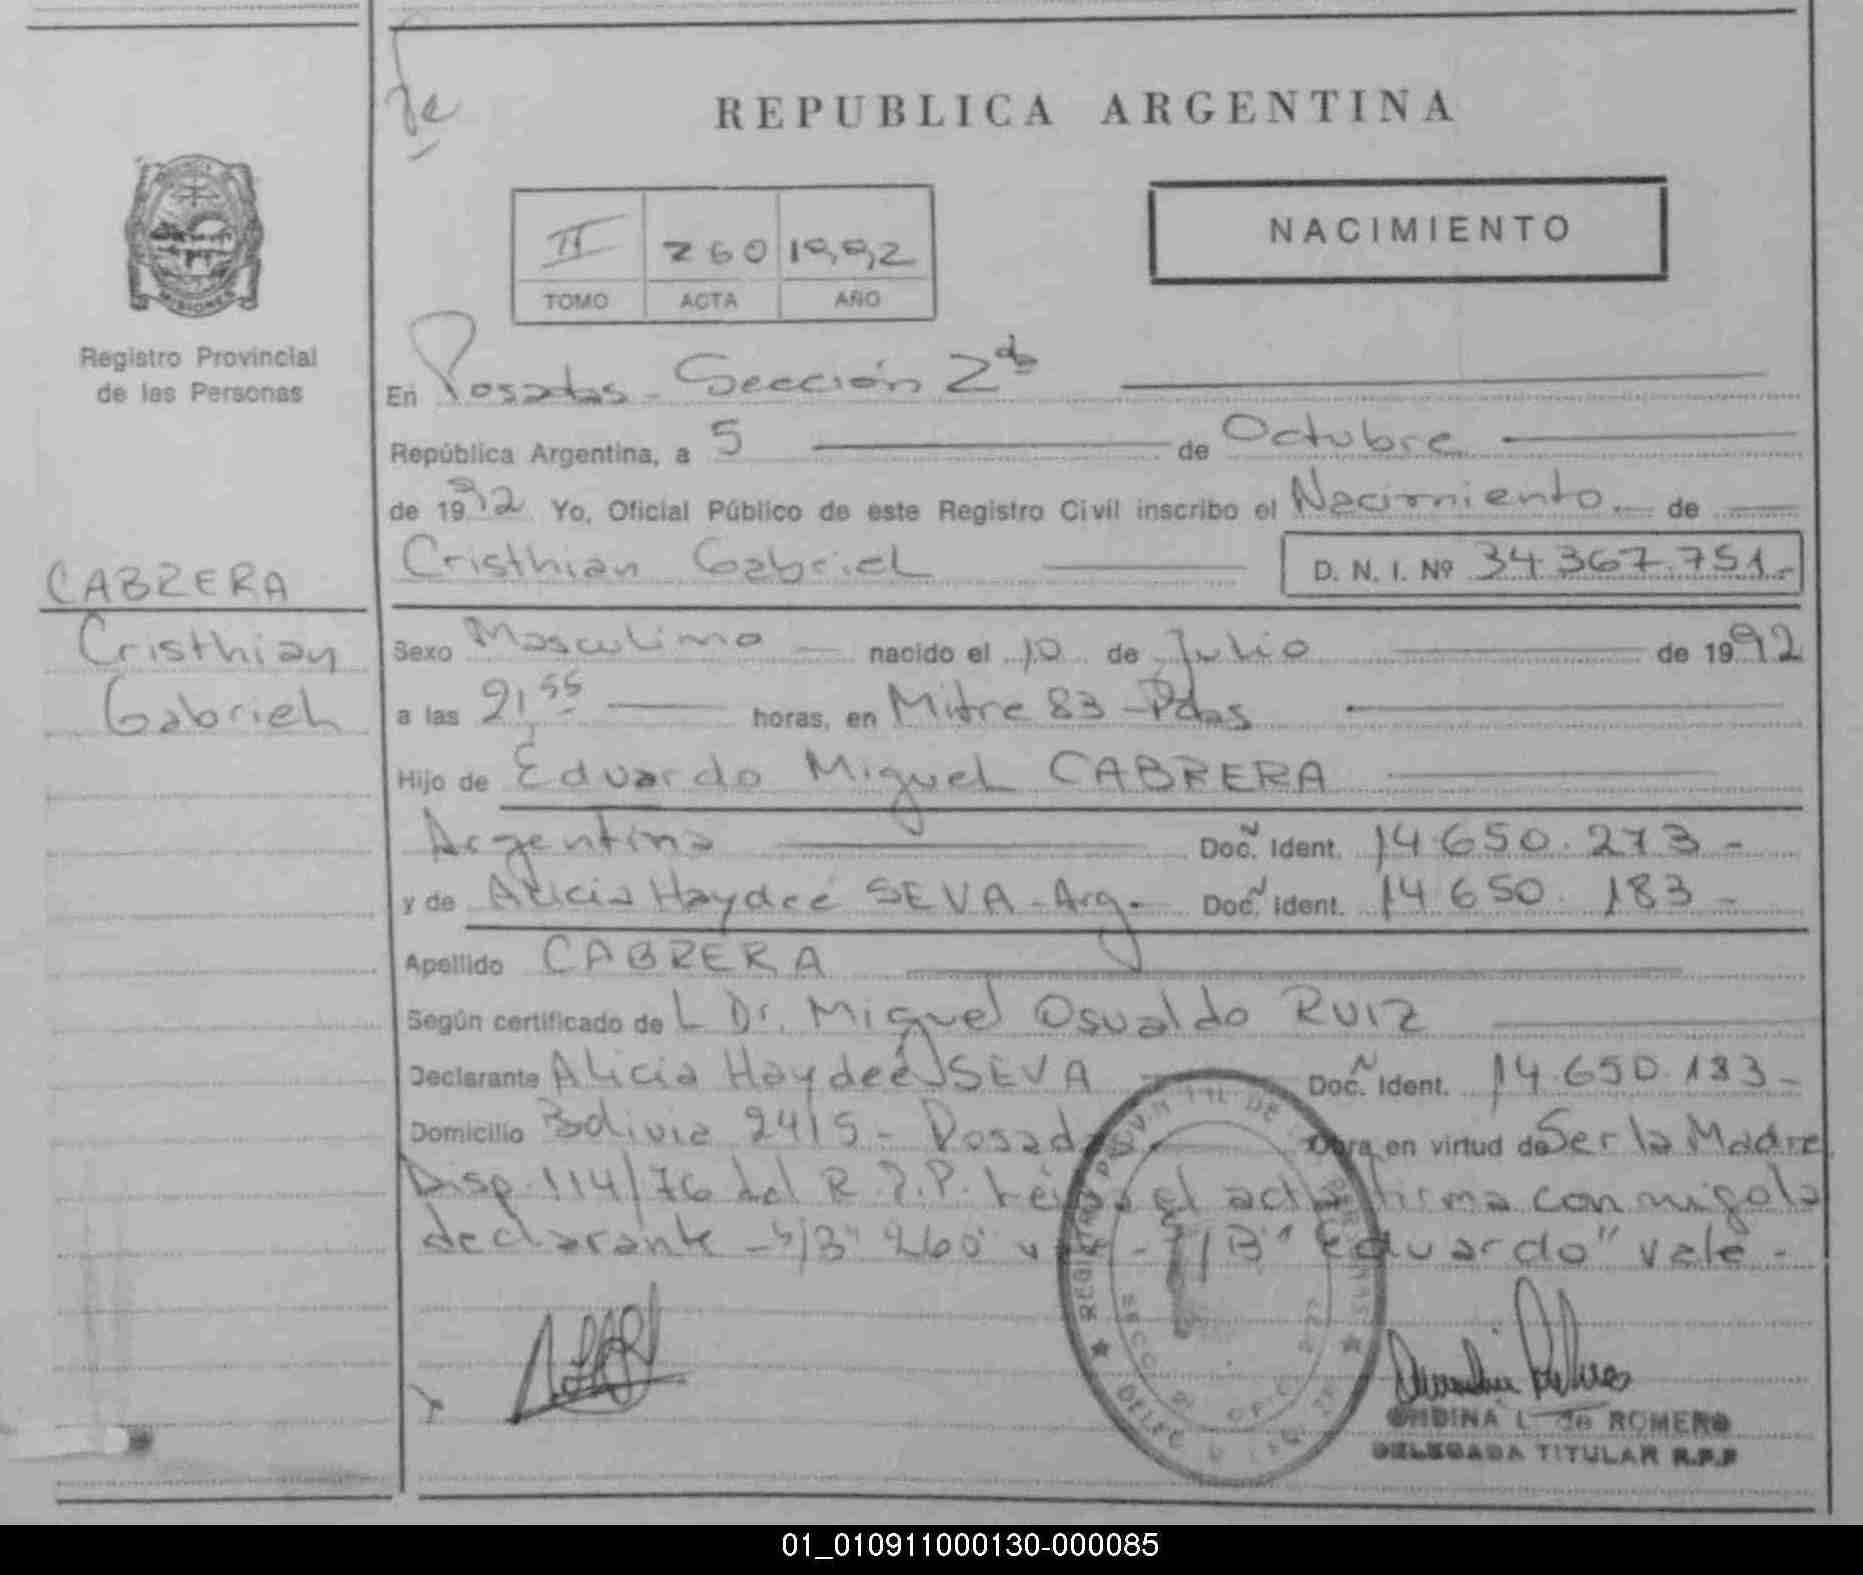 REPUBLICA ARGENTINA
NACIMIENTO
II 260 1992
TOMO ACTA AÑO
MISIONES
Registro Provincial
de las Personas
CABRERA
Cristhian
Gabriel
En Posadas - Sección 2da
República Argentina, a 5 de Octubre
de 1992 Yo, Oficial Público de este Registro Civil inscribo el Nacimiento de
Cristhian Gabriel D. N. I. Nº 34.367.751.-
Sexo Masculino nacido el 10 de Julio de 1992
a las 21,55 horas, en Mitre 83 - Pdas
Hijo de Eduardo Miguel CABRERA
Argentina Doc. Ident. 14.650.273 -
y de Alicia Haydeé SEVA - Arg. - Doc. Ident. 14.650.183 -
Apellido CABRERA
Según certificado del Dr. Miguel Osvaldo RUIZ
Declarante Alicia Haydeé SEVA Doc. Ident. 14.650.183 -
Domicilio Bolivia 2415 - Posadas Obra en virtud de Ser la Madre
Disp. 114/76 del R.P.P. Leída el acta firma conmigo la
declarante - S/B "260" vale - S/B "Eduardo" vale -
ONDINA L. de ROMERO
DELEGADA TITULAR R.P.P
01_010911000130-000085